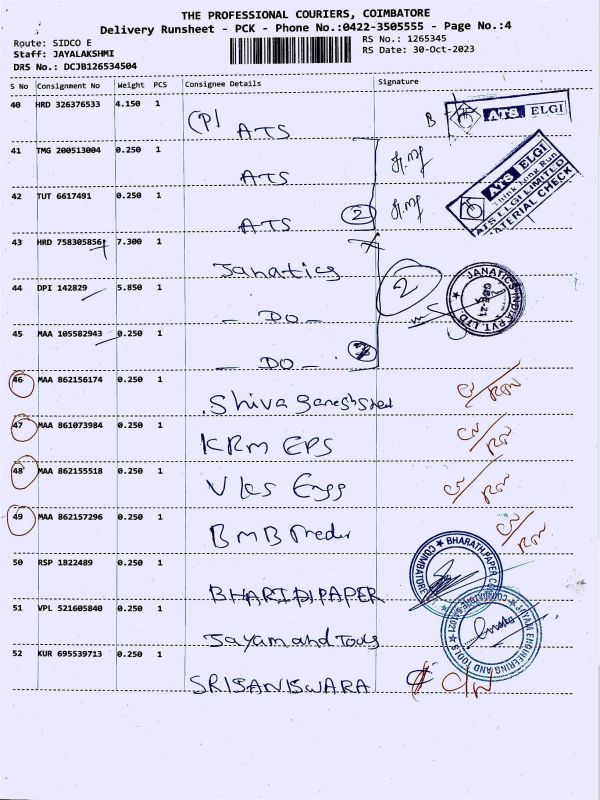 THE PROFESSIONAL COURIERS, COIMBATORE
Delivery Runsheet - PCK - Phone No.:0422-3505555 - Page No.:4
Route: SIDCO E
Staff: JAYALAKSHMI
DRS No.: DCJB126534504
RS No.: 1265345
RS Date: 30-Oct-2023
S No Consignment No Weight PCS Consignee Details Signature
40 HRD 326376533 4.150 1 (P) ATS
ATS ELGI
41 TMG 200513004 0.250 1 ATS
ATS ELGI
Think Long Run
ATS ELGI LIMITED
MATERIAL CHECK
42 TUT 6617491 0.250 1 ATS 2
43 HRD 758305856 7.300 1 Janatics
44 DPI 142829 5.850 1 - DO - 2
JANATICS INDIA PVT. LTD.
45 MAA 105582943 0.250 1 - DO -
46 MAA 862156174 0.250 1 Shiva Ganesh
47 MAA 861073984 0.250 1 KRM EPS
48 MAA 862155518 0.250 1 VKS Engg
49 MAA 862157296 0.250 1 BMB
50 RSP 1822489 0.250 1 BHARDIPAPER
BHARATH PAPER
COIMBATORE
51 VPL 521605840 0.250 1 Jayam and Tools
JAYAM ENGINEERING AND TOOLS
52 KUR 695539713 0.250 1 SRISANISWARA